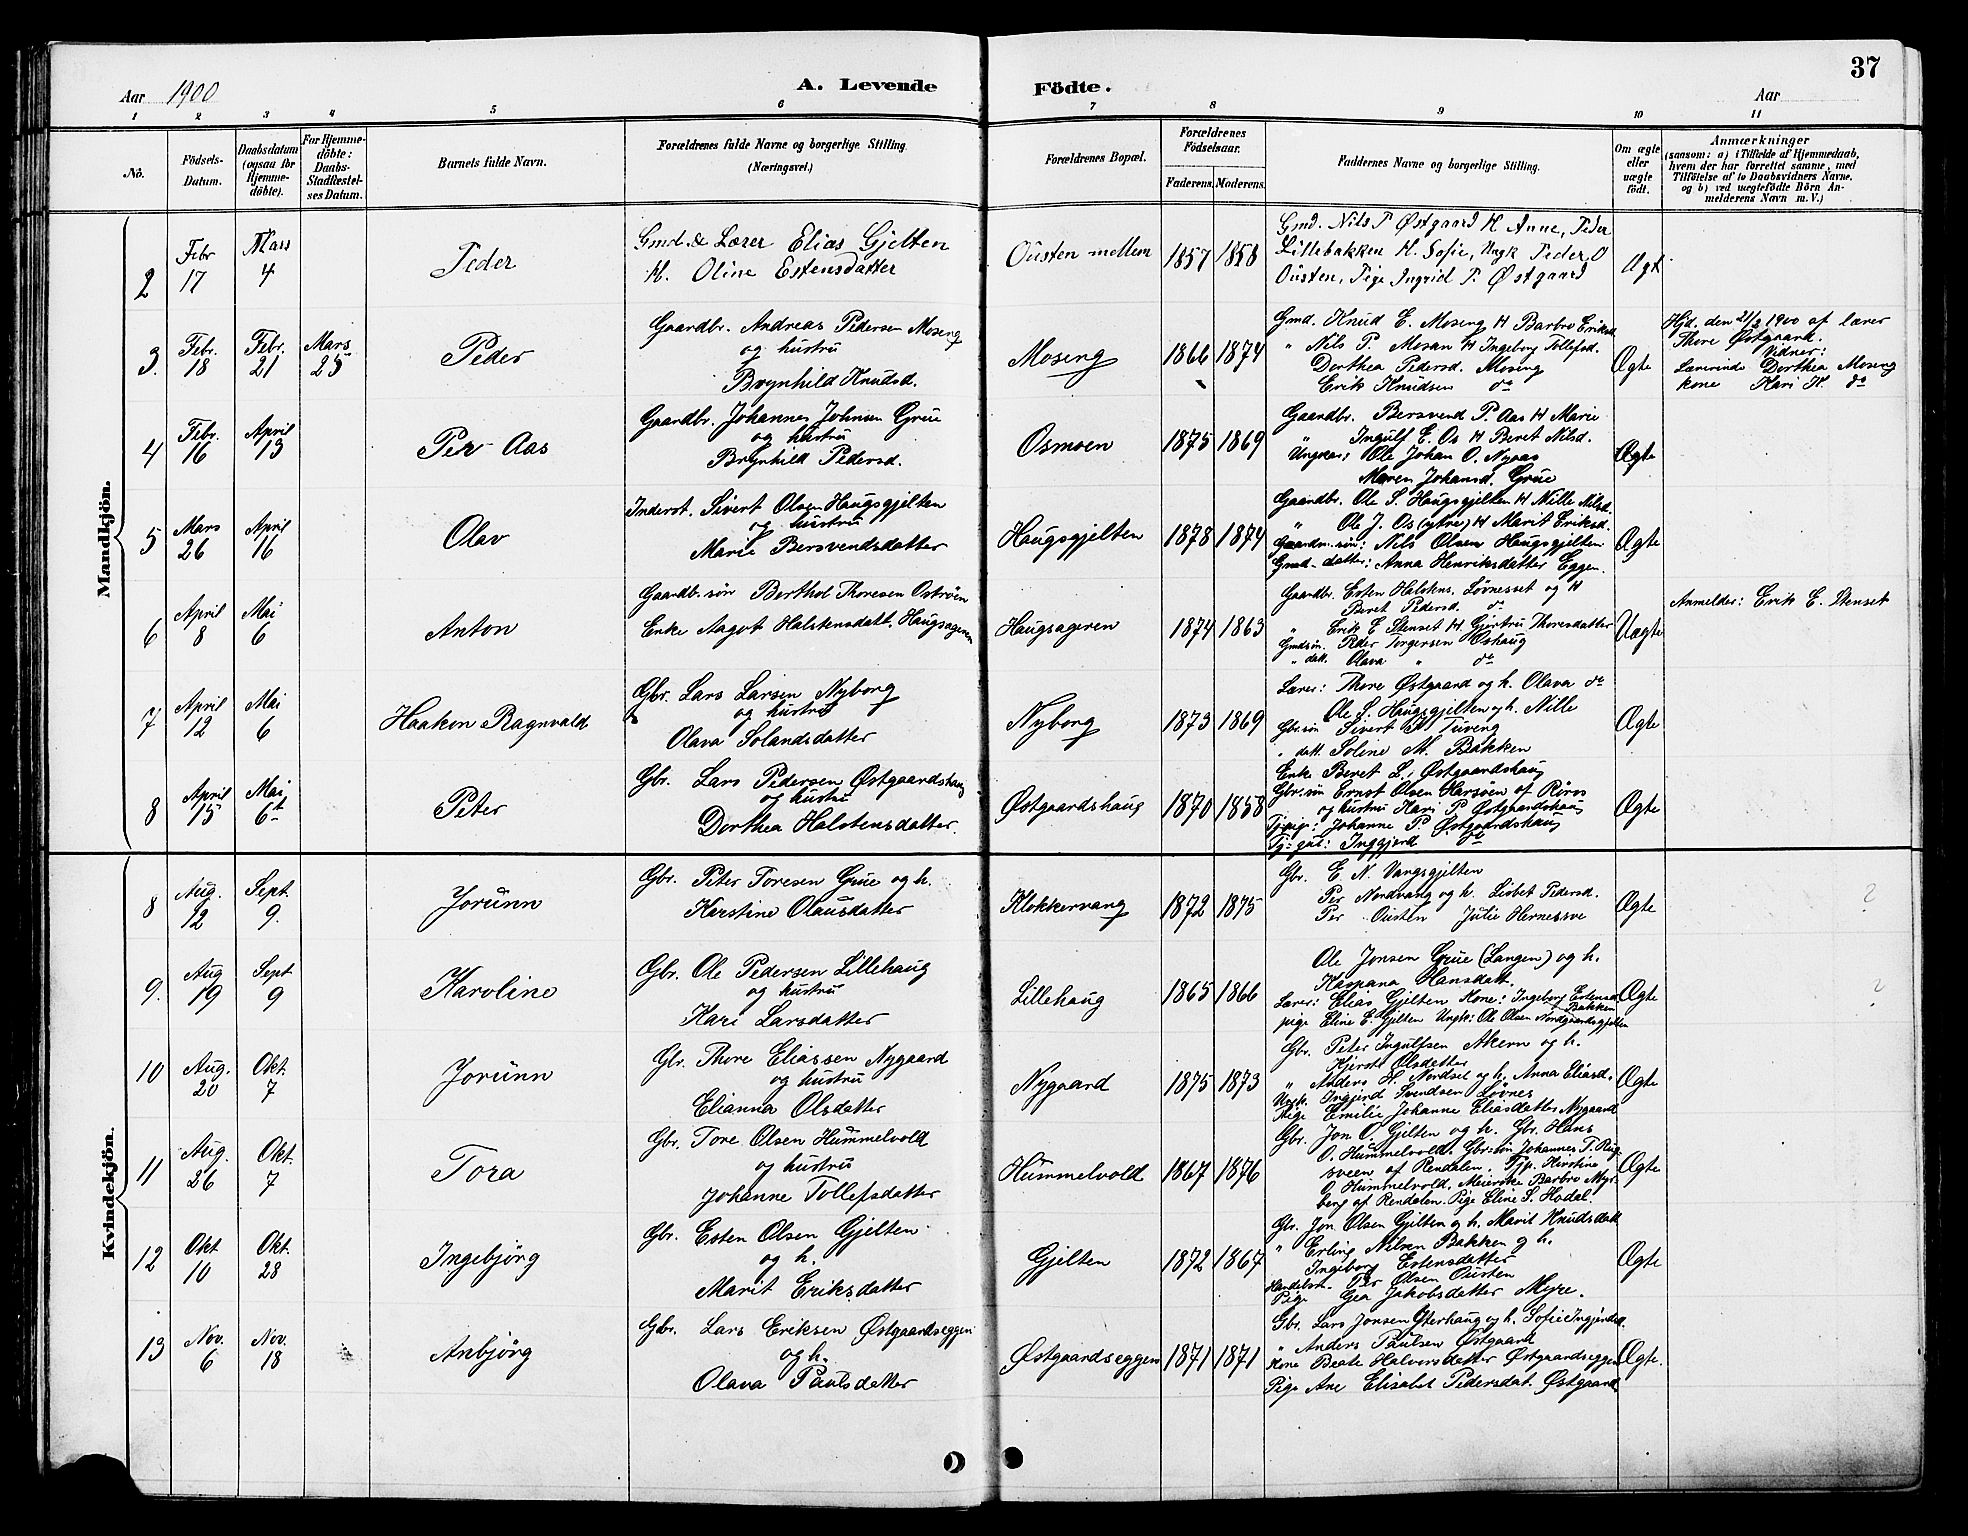 37
Aar 1900
A. Levende
Födte.
Aar
1 2 3 4 5 6 7 8 9 10 11
No.
Födsels-
Datum.
Daabsdatum
(ogsaa för
Hjemme-
döbte).
For Hjemme-
döbte:
Daabs-
Stadfæstel-
ses Datum.
Barnets fulde Navn.
Forældrenes fulde Navne og borgerlige Stilling.
(Næringsvei.)
Forældrenes Bopæl.
Forældrenes
Födselsaar.
Faderens. Moderens.
Faddernes Navne og borgerlige Stilling.
Om ægte
eller
uægte
födt.
Anmærkninger
(saasom: a) i Tilfælde af Hjemmedaab,
hvem der har forrettet samme, med
Tilföielse af to Daabsvidners Navne,
og b) ved uægtefödte Börn An-
melderens Navn m. V.)
Mandkjön.
2
Febr
17
Mars
4
Peder
Gmd. & Lærer Elias Gjelten
H. Oline Estensdatter
Ousten mellem
1857 1858
Gmd. Nils P Østgaard H Anne, Peder
Lillebakken H. Sofie, Ungk Peder O
Ousten, Pige Ingrid P. Østgaard
Ægt
3.
Febr.
18
Febr.
21
Mars
25
Peder
Gaardbr. Andreas Pedersen Moseng
og hustru
Brynhild Knudsd.
Moseng
1866 1874
Gmd. Knud E. Moseng H Barbro Eriksd.
" Nils P. Mosan H Ingeborg Tollefsd.
Dorthea Pedersd. Moseng
Erik Knudsen do
Ægte
Hjd. den 21/2 1900 af lærer
Thore Østgaard.
Vidner:
Lærerinde Dorthea Moseng
kone Kari H. do
4
Febr.
16
April
13
Per Aas
Gaardbr. Johannes Johnsen Grue
og hustru
Brynhild Pedersd.
Osmoen
1875 1869
Gaardbr. Bersvend P. Aas H Marie
" Ingulf E. Os H Beret Nilsd.
Ungkar: Ole Johan O. Nyaas
Maren Johansd. Grue
Ægte
5
Mars
26
April
16
Olav
Inderst. Sivert Olsen Haugsgjelten
og hustru
Marie Bersvendsdatter
Haugsgjelten
1878 1874
Gaardbr. Ole S. Haugsgjelten H Nille Nilsd.
" Ole J. Os (ytre) H Marit Eriksd.
Gaardm. søn: Nils Olsen Haugsgjelten
Gmd-datter: Anna Henriksdatter Eggen.
Ægte
6
April
8
Mai
6
Anton
Gaardbr. søn Berthol Thoresen Ostrøen
Enke Aagot Halstensdatt. Haugsageren
Haugsageren
1874 1863
Gaardbr. Esten Halstens. Løvnesset og H
Beret Pedersd. do
" Erik E Stenset H Gjertru Thoresdatter
Gmdsøn. Peder Torgersen Øshaug
" datt. Olava " do
Uægte
Anmelder: Erik E. Stenset
7
April
12
Mai
6
Haaken Ragnvald
Gbr. Lars Larsen Nyborg
og hustru
Olava Solandsdatter
Nyborg
1873 1869
Lærer: Thore Østgaard og h. Olava do
Ole S. Haugsgjelten og h. Nille
Gbr. søn Sivert M Tuveng
" datt. Soline M. Bakken
Ægte
8
April
15
Mai
6t
Peter
Gbr. Lars Pedersen Østgaardshaug
og hustru
Dorthea Halstensdatter.
Østgaardshaug
1870 1858
Enke Beret L. Østgaardshaug
Gbr. søn Ernst Olsen Harsøen af Røros
og hustru Kari P. Østgaardshaug
Tj.pige: Johanne P. Østgaardshaug
Tj: gut: Inggjerd do
Ægte
Kvindekjön.
8
Aug.
12
Sept.
9.
Jorunn
Gbr. Peter Toresen Grue og h.
Kerstine Olausdatter
Klokkervang
1872 1875
Gbr. E. N. Vangsgjelten
Per Nordvang og h. Lisbet Pedersd.
Per Ousten Julie Hernessve
Ægte
?
9.
Aug
19
Sept
9
Karoline
Gbr. Ole Pedersen Lillehaug
og hustru
Kari Larsdatter
Lillehaug
1865 1866
Ole Jonsen Grue (Langen) og h.
Kaspara Hansdatt.
Lærer: Elias Gjelten Kone: Ingeborg Estensd.
Bakken
pige Eline E. Gjelten Ungk: Ole Olsen Nordgaardsgjelten
Ægte
?
10
Aug.
20
Okt.
7
Jorunn
Gbr. Thore Eliassen Nygaard
og hustru
Elianna Olsdatter
Nygaard
1875 1873
Gbr. Peter Ingulfsen Akern og h.
Kjersti Olsdatter
" Anders H. Nordset og h. Anna Eliasd.
Ungk. Ingjerd Svendsen Løvnes
Pige Emilie Johanne Eliasdatter Nygaard
Ægte
11
Aug.
26
Okt.
7
Tora
Gbr. Tore Olsen Hummelvold
og hustru
Johanne Tollefsdatter
Hummelvold
1867 1876
Gbr. Jon O. Gjelten og h. Gbr. Hans
O. Hummelvold. Gbr. søn Johannes T. Rug-
sveen af Rendalen. Tjp. Kirstine
O Hummelvold. Meierske Barbro Myr-
berg af Rendalen. Pige Eline S. Hodal.
Ægte
12
Okt
10
Okt.
28
Ingebjørg
Gbr. Esten Olsen Gjelten
og h.
Marit Eriksdatter
Gjelten
1872 1867
Gbr. Jon Olsen Gjelten og h. Marit Knudsdatt
" Erling Nilsen Bakken og h.
Ingeborg Estensdatter
Handelsb. Per Olsen Ousten
Pige Gea Jakobsdatter Myre.
Ægte
13
Nov.
6
Nov.
18
Anbjørg
Gbr. Lars Eriksen Østgaardseggen
og h.
Olava Paulsdatter
Østgaardseggen
1871 1871
Gbr. Lars Jonsen Ytterhaug og h. Sofie Ingjerdsd.
" Anders Paulsen Østgaard
Kone Beate Halvorsdatter Østgaardseggen
Pige Ane Elisabet Pedersdat. Østgaard
Ægte.